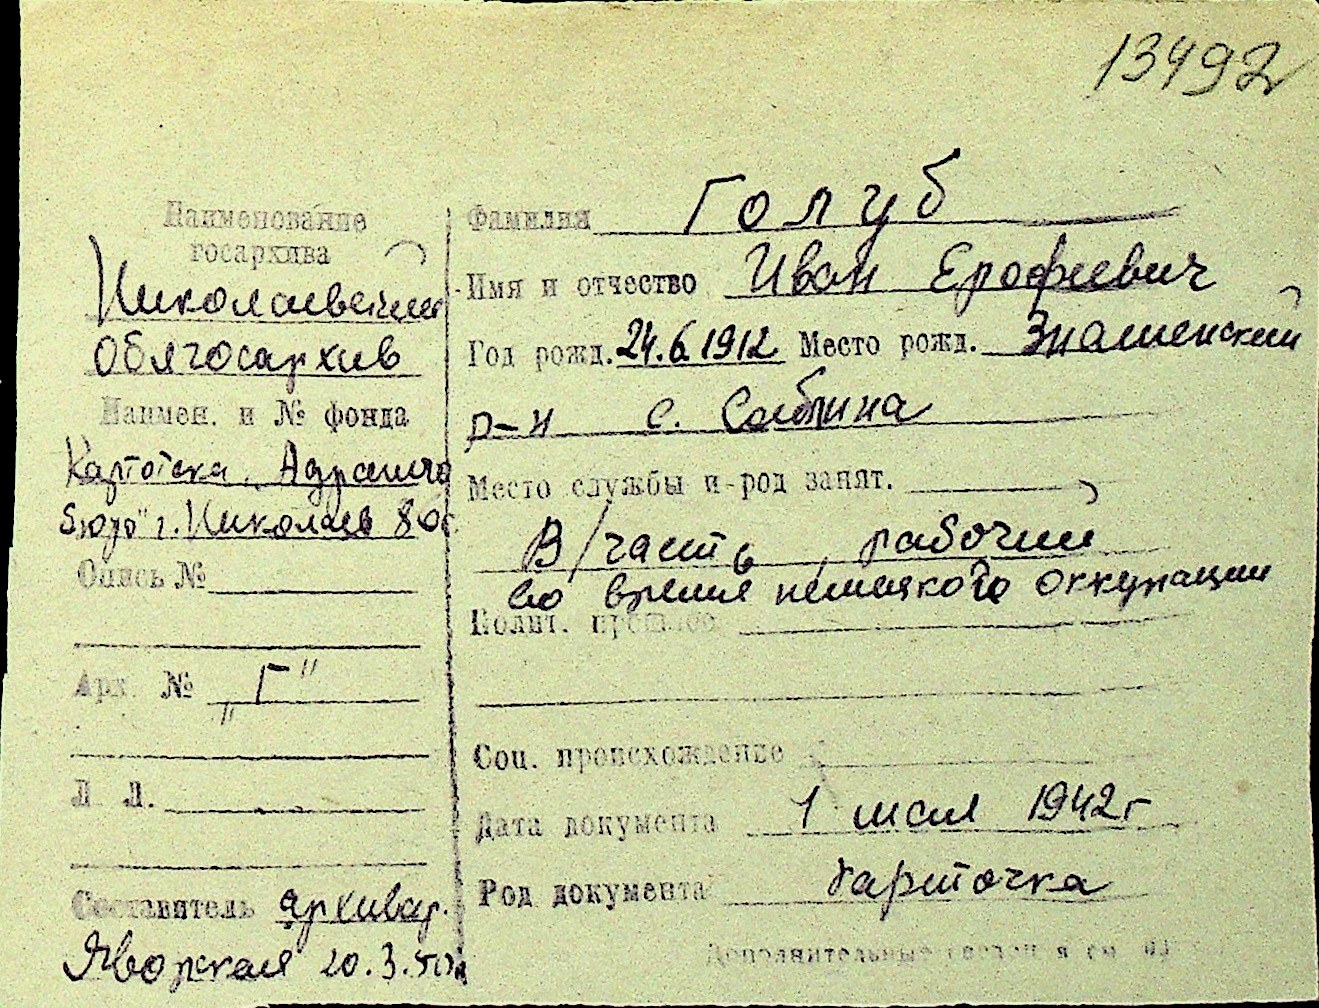 13492
Наименование
госархива
Николаевский
Облгосархив
Наимен. и № фонда
Картотека „Адресного
бюро" г. Николаев
Опись №
Арх. № „Г"
Л. Л.
Составитель архивар.
Яворская 20.3.50г
Фамилия Голуб
Имя и отчество Иван Ерофеевич
Год рожд. 24.6.1912 Место рожд. Знаменский
р-н с. Саблина
Место службы и род занят.
В/часть, рабочий
во время немецкого оккупации
Полит. прошлое
Соц. происхождение
Дата документа 1 мая 1942г
Род документа карточка
Дополнительные сведения см.